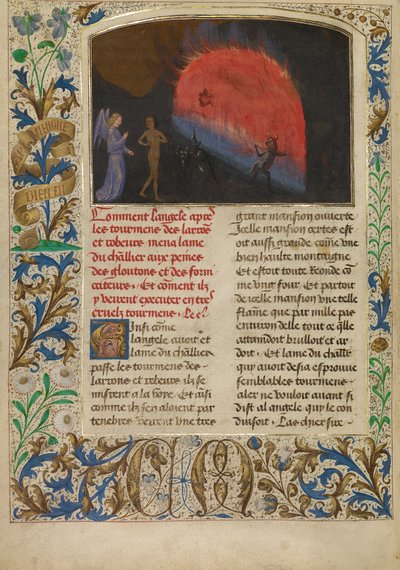 Comment langele apres
les tourmens des larrons
et robeurs mena lame
du chllier aux peines
des gloutons et des forni
cateurs. Et coment ilz
y veirent executer en tres
cruelz tourmens. Le
Ainsi come
langele auoit et
lame du challier
passe les tourmens des
larrons et robeurs ilz se
misrent a la voye. Et ainsi
comme ilz sen aloient par
tenebres veirent vne tres
grant mansion ouuerte
Icelle mansion certes est
oit aussi grande come vne
bien haulte montaigne
Et estoit toute reonde co
me vng four. Et partoit
de icelle mansion vne telle
flame que par mille pas
enuiron delle tout ce qlle
attaindoit brulloit et ar
doit. Et lame du challr
qui auoit desia esprouue
semblables tourmens
aler ne vouloit auant si
dist al angele qui le con
duisoit. Las chier sire
bien en
C M